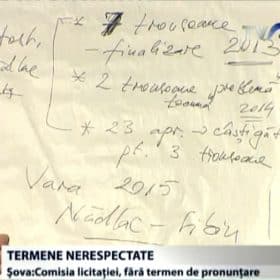 * 7 tronsoane
- finalizare 2013
* 2 tronsoane problema
toamna 2014
* 23 apr. → câștigăt
pt. 3 tronsoane
Vara 2015
Nădlac - Sibiu
TERMENE NERESPECTATE
Șova:Comisia licitației, fără termen de pronunțare